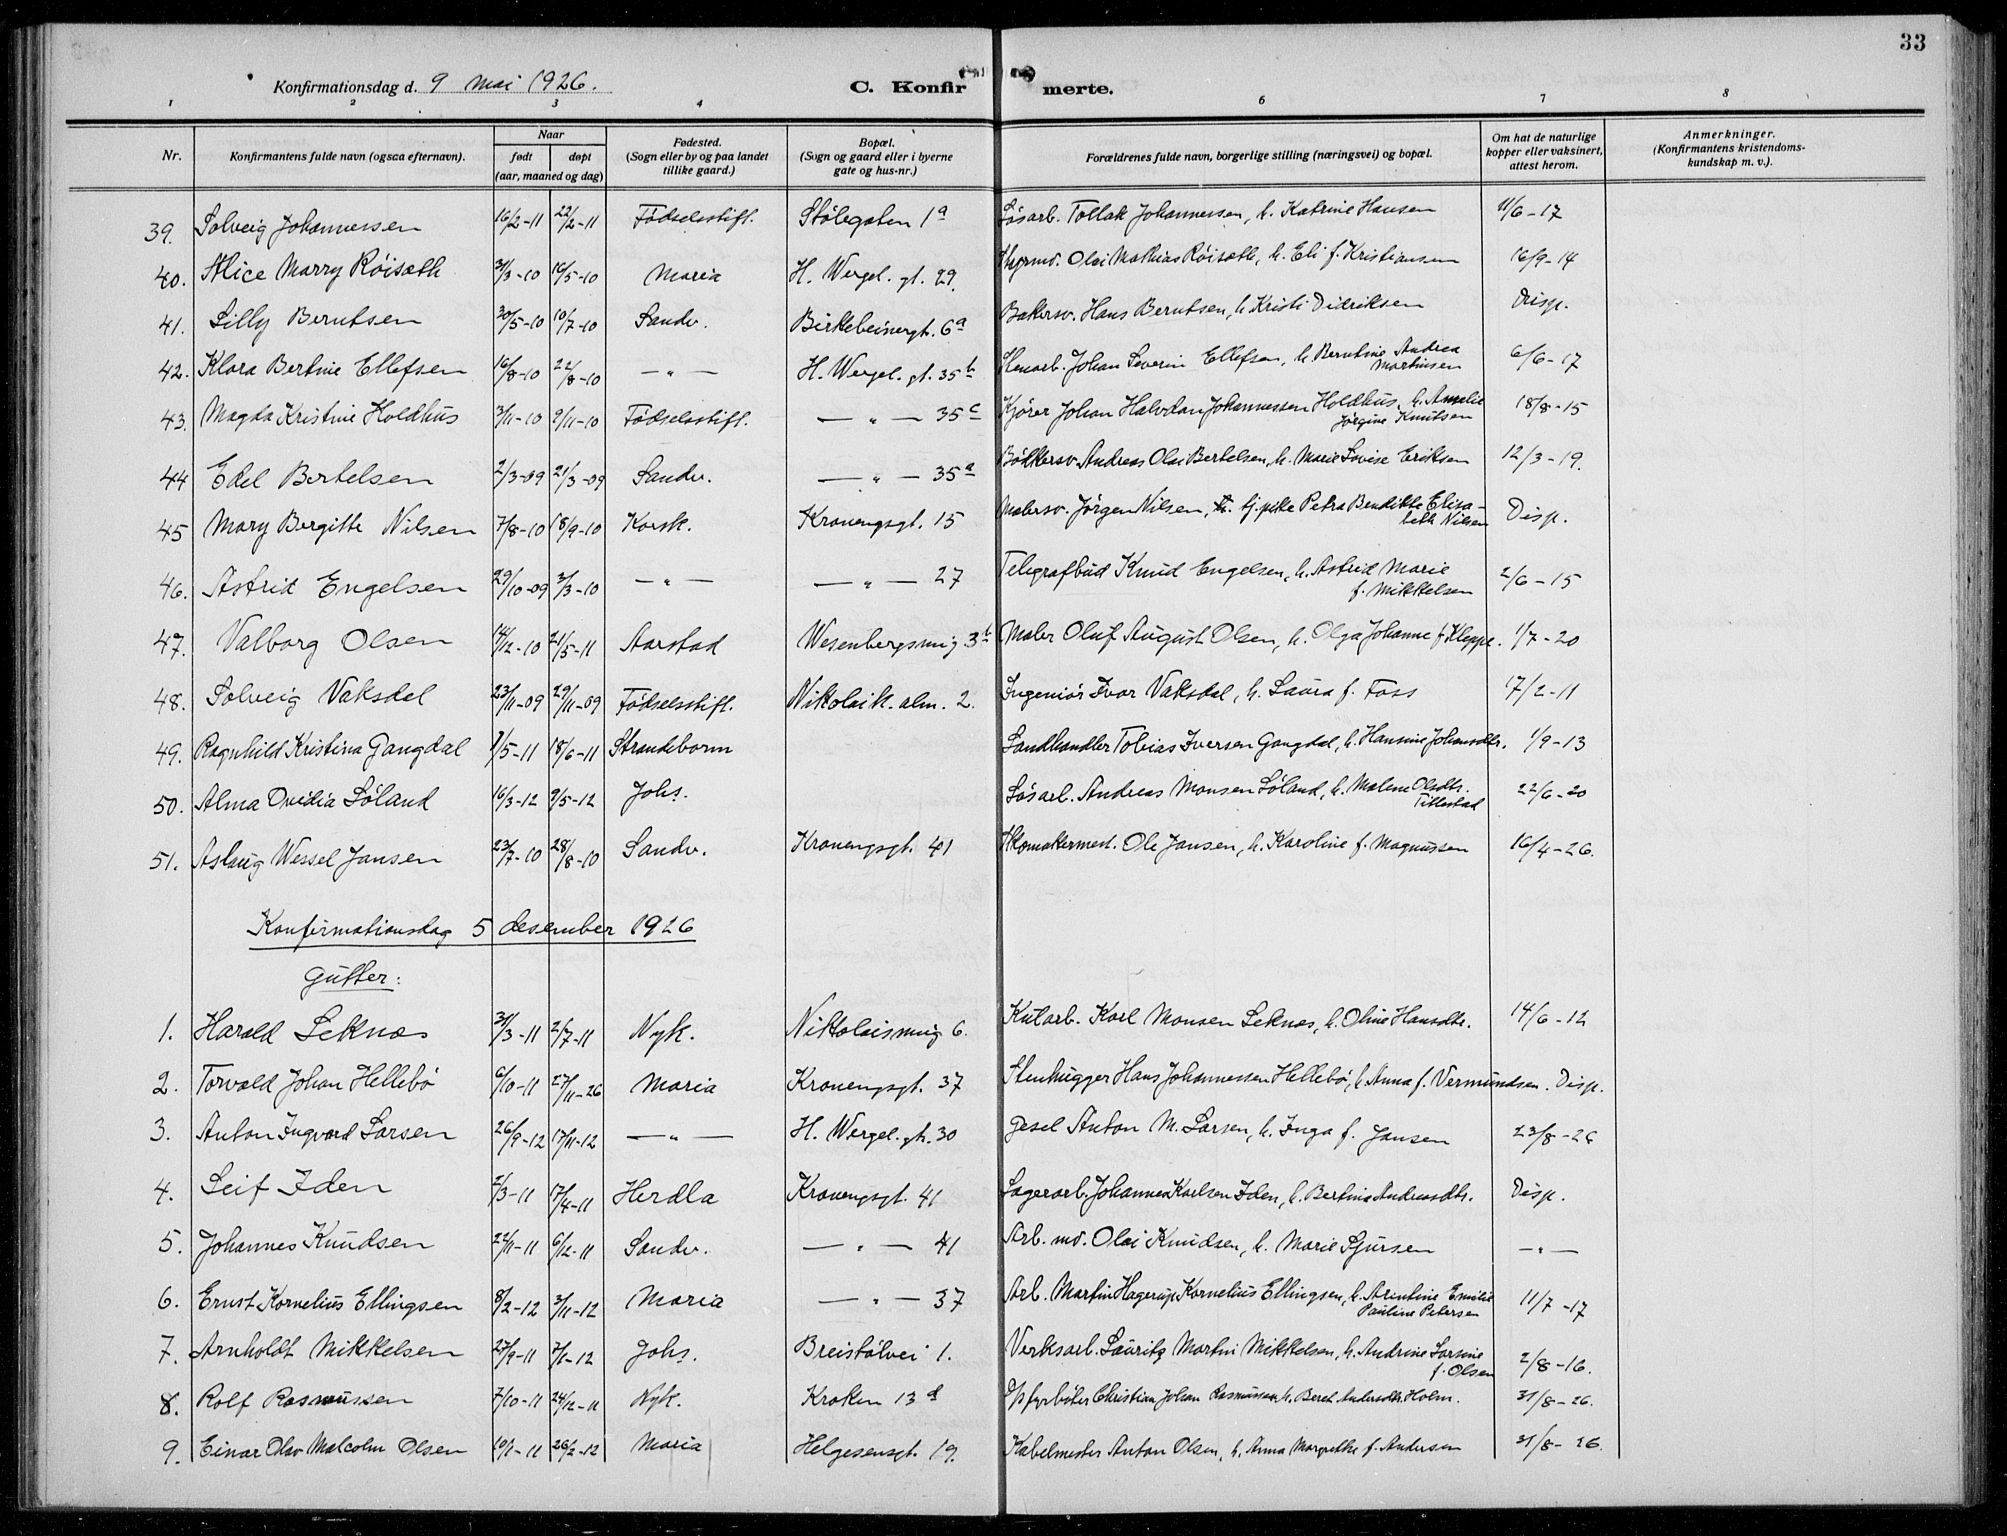 33
Konfirmationsdag d. 9 mai 1926.
C. Konfirmerte.
1 2 3 4 5 6 7 8
Nr.
Konfirmantens fulde navn (ogsaa efternavn).
Naar
født døpt
(aar, maaned og dag)
Fødested.
(Sogn eller by og paa landet
tillike gaard.)
Bopæl.
(Sogn og gaard eller i byerne
gate og hus-nr.)
Forældrenes fulde navn, borgerlige stilling (næringsvei) og bopæl.
Om hat de naturlige
kopper eller vaksinert,
attest herom.
Anmerkninger.
(Konfirmantens kristendoms-
kundskap m. v.).
39. Solveig Johannessen 16/2-11 22/2-11 Fødselsstift. Stølegaten 1a Løsarb. Tollak Johannessen, h. Katrine Hansen 11/6-17
40. Alice Marry Røisæth 31/3-10 16/5-10 Maria H. Wergel. gt. 29. Styrmd. Olai Mathias Røisæth, h. Eli f. Kristiansen 16/9-14
41. Lilly Berntsen 30/5-10 10/7-10 Sandv. Birkebeinergt. 6a Bakersv. Hans Berntsen, h. Kristi Didriksen Disp.
42. Klara Bertine Ellefsen 16/8-10 22/8-10 — „ — H. Wergel. gt. 35b Stenarb. Johan Severin Ellefsen, h. Berntine Andrea Martinsen 6/6-17
43. Magda Kristine Holdhus 3/11-10 9/11-10 Fødselsstift. — „ — 35c Kjører Johan Halvdan Johannessen Holdhus, h. Amalie Jørgine Knutsen 18/8-15
44 Edel Bertelsen 2/3-09 21/3-09 Sandv. — „ — 35a Bødkersv. Andreas Olai Bertelsen, h. Marie Lovise Eriksen 12/3-19.
45 Mary Bergitte Nilsen 7/8-10 18/9-10 Korsk. Kroneng​sgt. 15 Malersv. Jørgen Nilsen, tj. pike Petra Bendikte Elisa-beth Nilsen Disp.
46. Astrid Engelsen 29/10-09 3/3-10 — „ — — „ — 27 Telegrafbud Knud Engelsen, h. Astrid Marie f. Mikkelsen 2/6-15
47. Valborg Olsen 14/12-10 21/5-11 Aarstad Wesenbergsmug 3b Maler Oluf August Olsen, h. Olga Johanne f. Kleppe. 1/7-20
48. Solveig Vaksdal 23/11-09 29/11-09 Fødselsstift. Nikolaik. alm. 2. Ingeniør Ivar Vaksdal, h. Laura f. Foss 17/2-11
49. Ragnhild Kristina Gangdal 1/5-11 18/6-11 Strandebarm Landhandler Tobias Iversen Gangdal, h. Hansine Johansdtr. 1/9-13
50. Alma Ovidia Løland 16/3-12 9/5-12 Johs. Løsarb. Andreas Monsen Løland, h. Malene Olsdtr. Titlestad 22/6-20
51. Aslaug Wessel Jansen 23/7-10 28/8-10 Sandv. Kronengsgt. 41 Skomakermest. Ole Jansen, h. Karoline f. Magnussen 16/4-26.
Konfirmationsdag 5 desember 1926
Gutter:
1. Harald Leknes 31/3-11 2/7-11 Nyk. Nikolaismug 6. Kularb. Karl Monsen Leknes, h. Oline Hansdtr. 14/6-12
2. Torvald Johan Hellebø 6/10-11 27/11-26 Maria Kronengsgt. 37 Stenhugger Hans Johannessen Hellebø, h. Anna f. Vermundsen. Disp.
3. Anton Ingvard Larsen 26/9-12 17/11-12 — „ — H. Wergel. gt. 30 Gesel Anton M. Larsen, h. Inga f. Jansen 23/8-26
4. Leif Iden 2/3-11 17/4-11 Herdla Kronengsgt. 41 Lagerarb. Johannes Karlsen Iden, h. Bertina Andreasdtr. Disp.
5. Johannes Knudsen 22/11-11 6/12-11 Sandv. — „ — 41 Arb. md. Olai Knudsen, h. Marie Sjursen — „ —
6. Ernst Kornelius Ellingsen 8/2-12 3/11-12 Maria — „ — 37 Arb. Martin Hagerup Kornelius Ellingsen, h. Arentine Emilie Pauline Petersen 11/7-17
7. Arnholdt Mikkelsen 27/9-11 7/1-12 Johs. Breistølvei 1. Verksarb. Lauritz Martin Mikkelsen, h. Andrine Larsine f. Olsen 2/8-16.
8. Rolf Rasmussen 7/10-11 24/12-11 Nyk. Kroken 13d fyrbøter Christian Johan Rasmussen h. Beret Andersdtr. Holm. 31/8-26.
9. Einar Olav Malcolm Olsen 10/1-11 26/2-12 Maria Helgesensgt. 19. Kabelmester Anton Olsen, h. Anna Margrethe f. Andersen 31/8-26.